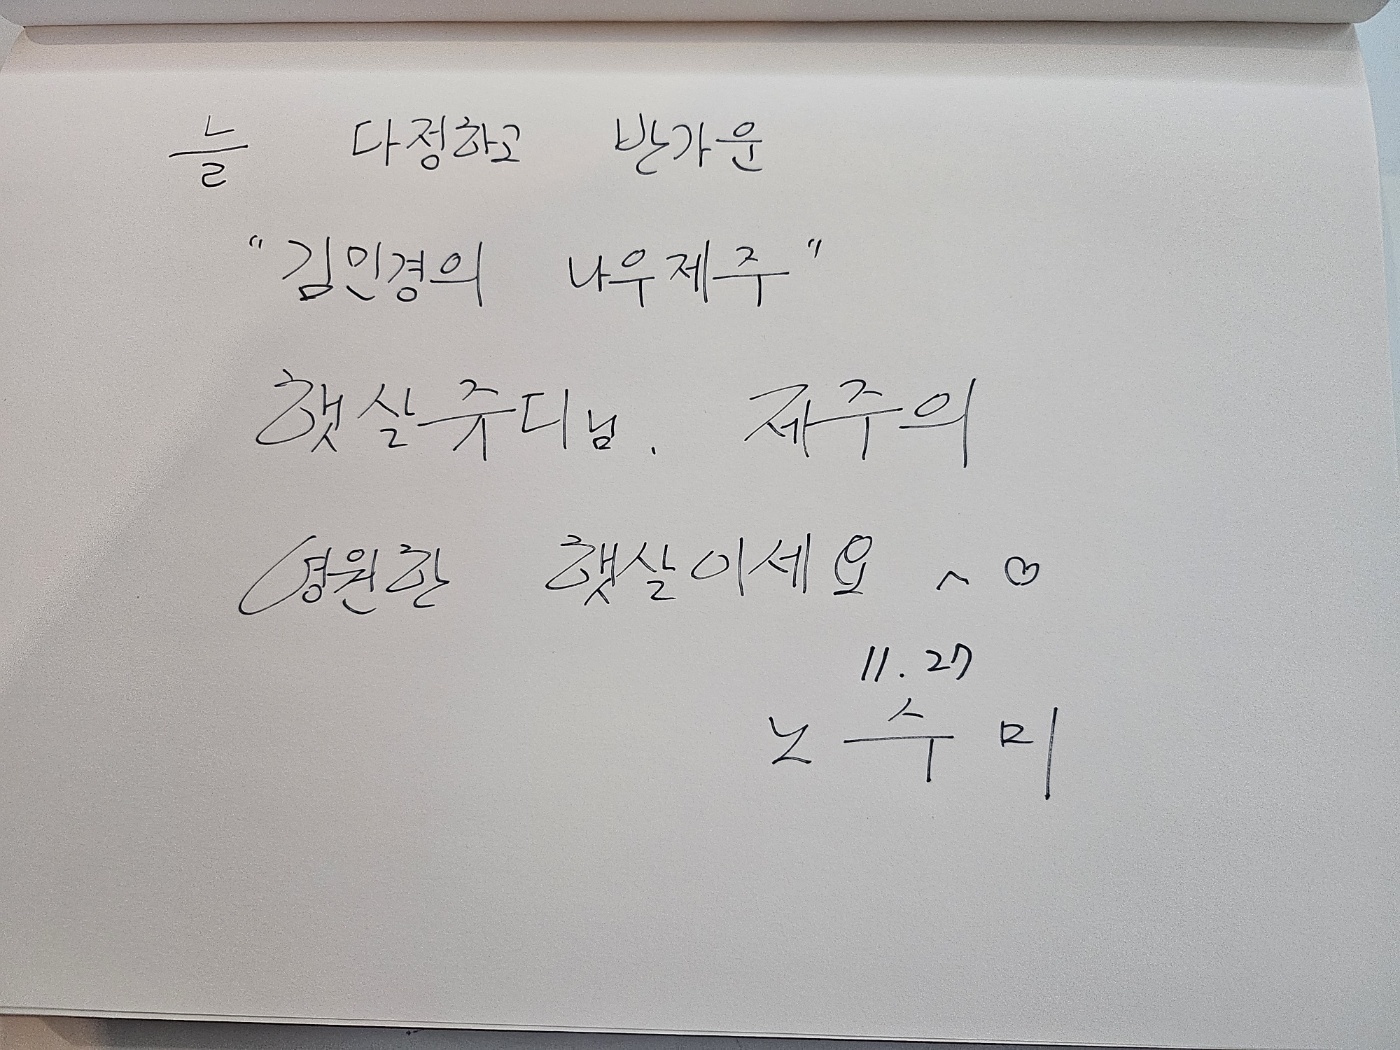 늘 다정하고 반가운
"김민경의 나우제주"
햇살쥬디님. 제주의
영원한 햇살이세요 ~ ♡
11.27
노수미